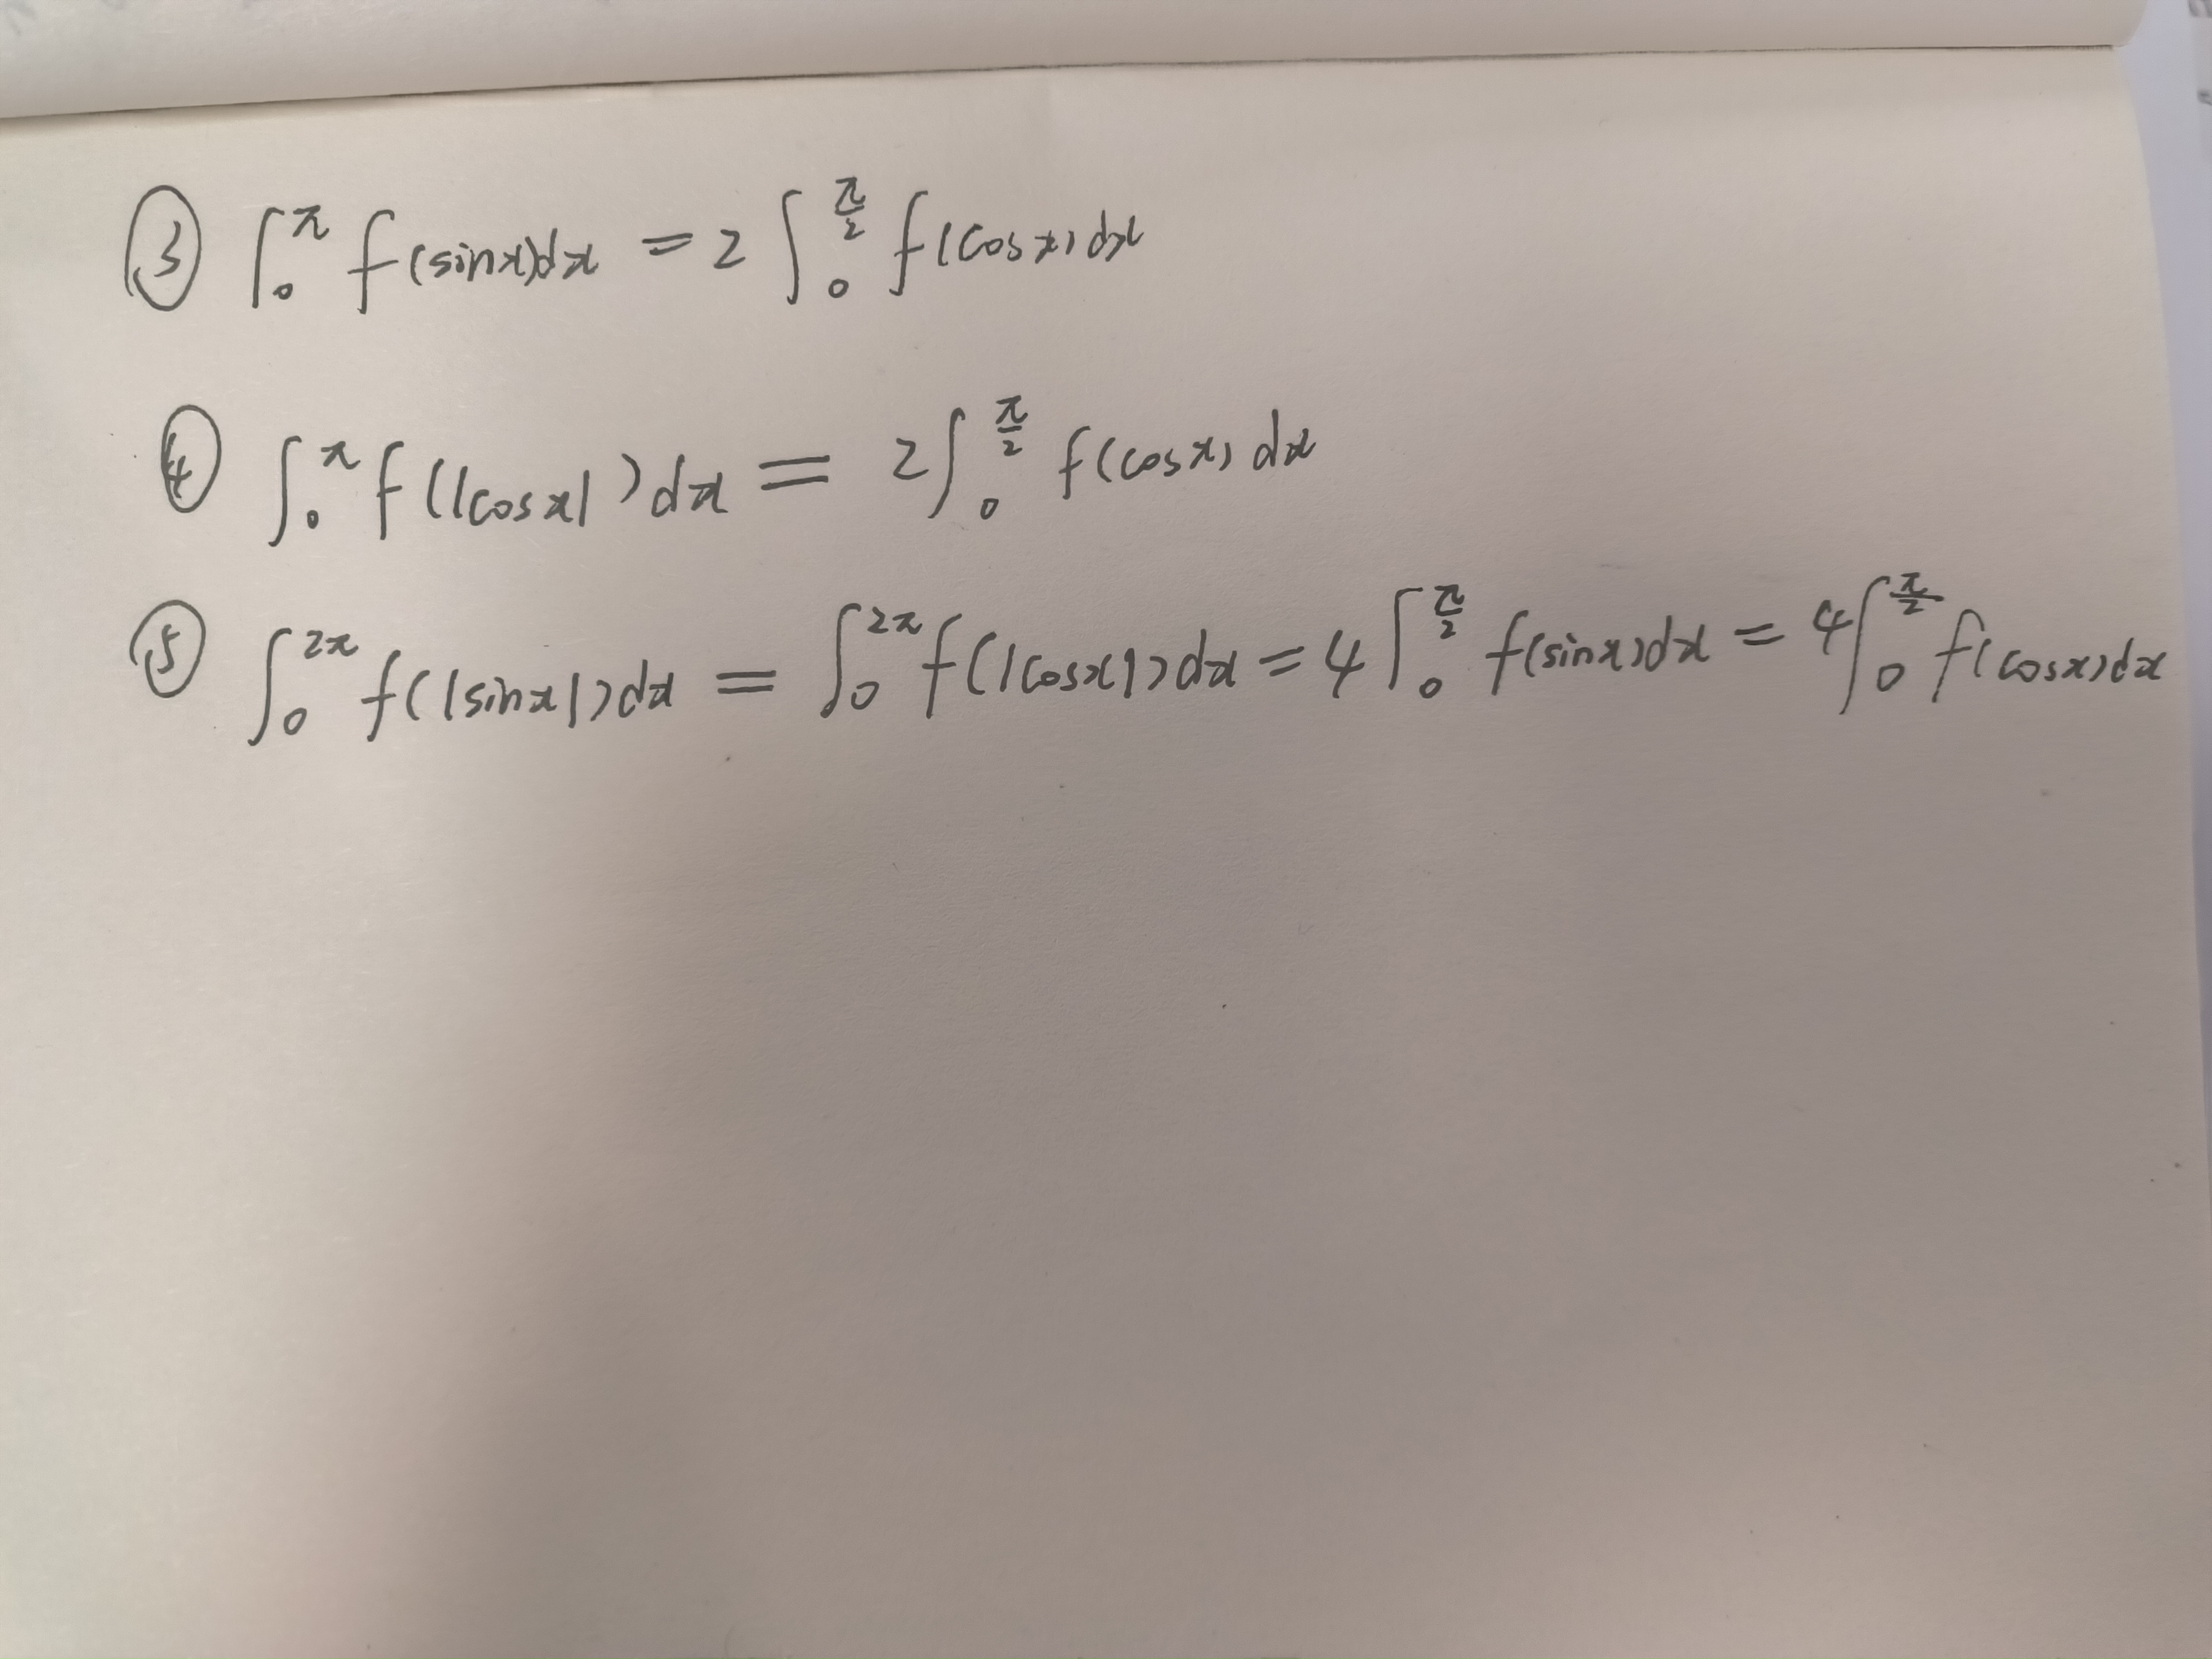 ③ ∫₀^π f(sinx)dx = 2 ∫₀^(π/2) f(cosx)dx
④ ∫₀^π f(|cosx|)dx = 2∫₀^(π/2) f(cosx)dx
⑤ ∫₀^(2π) f(|sinx|)dx = ∫₀^(2π) f(|cosx|)dx = 4∫₀^(π/2) f(sinx)dx = 4∫₀^(π/2) f(cosx)dx